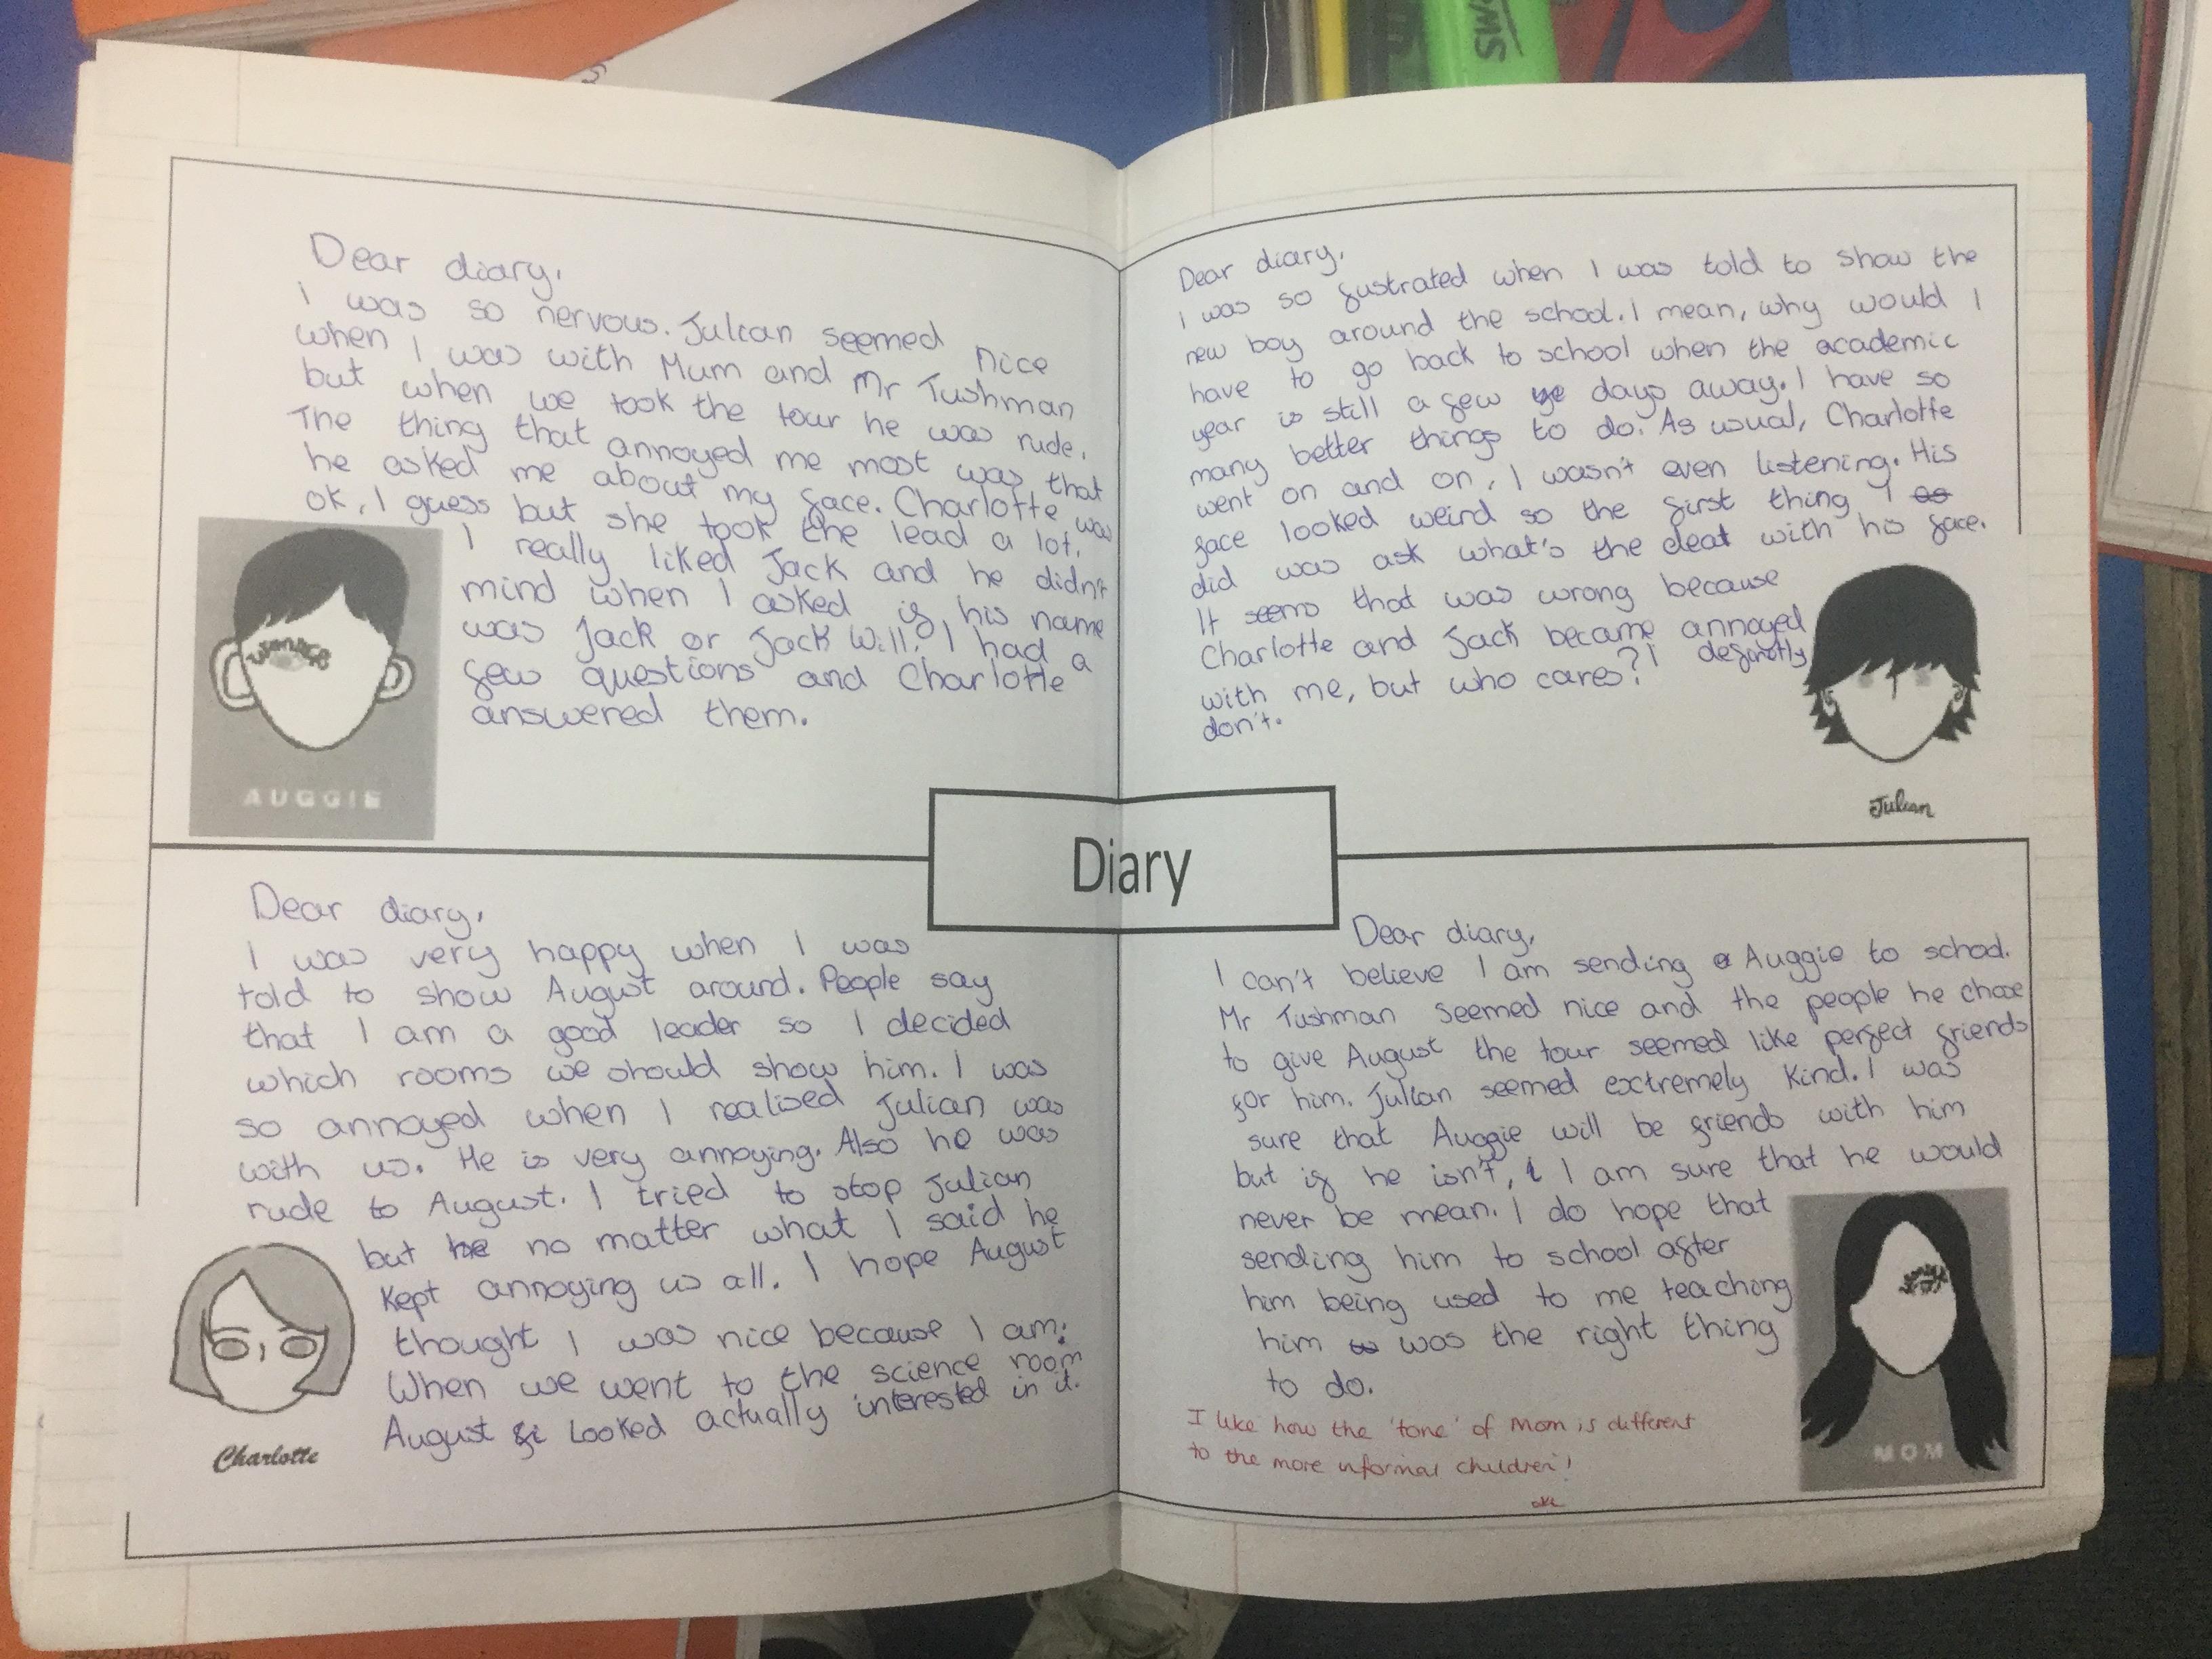 Dear diary,
i was so nervous. Julian seemed nice
when I was with Mum and Mr Tushman
but when we took the tour he was rude.
The thing that annoyed me most was that
he asked me about my face. Charlotte was
ok, I guess but she took the lead a lot.
I really liked Jack and he didn't
mind when I asked if his name
was Jack or Jack Will. I had a
few questions and Charlotte
answered them.
wonder
AUGGIE
Dear diary,
I was so fustrated when I was told to show the
new boy around the school. I mean, why would I
have to go back to school when the academic
year is still a few ye days away. I have so
many better things to do. As usual, Charlotte
went on and on, I wasn't even listening. His
face looked weird so the first thing I as
did was ask what's the deal with his face.
It seems that was wrong because
Charlotte and Jack became annoyed
with me, but who cares? I defintly
don't.
Julian
Diary
Dear diary,
I was very happy when I was
told to show August around. People say
that I am a good leader so I decided
which rooms we should show him. I was
so annoyed when I realised Julian was
with us. He is very annoying. Also he was
rude to August. I tried to stop Julian
but he no matter what I said he
kept annoying us all. I hope August
thought I was nice because I am.
When we went to the science room
August fi looked actually interested in it.
Charlotte
Dear diary,
I can't believe I am sending a Auggie to school.
Mr Tushman seemed nice and the people he chose
to give August the tour seemed like perfect friends
for him. Julian seemed extremely kind. I was
sure that Auggie will be friends with him
but if he isn't, i I am sure that he would
never be mean. I do hope that
sending him to school after
him being used to me teaching
him to was the right thing
to do.
I like how the 'tone' of Mom is different
to the more informal children!
MOM